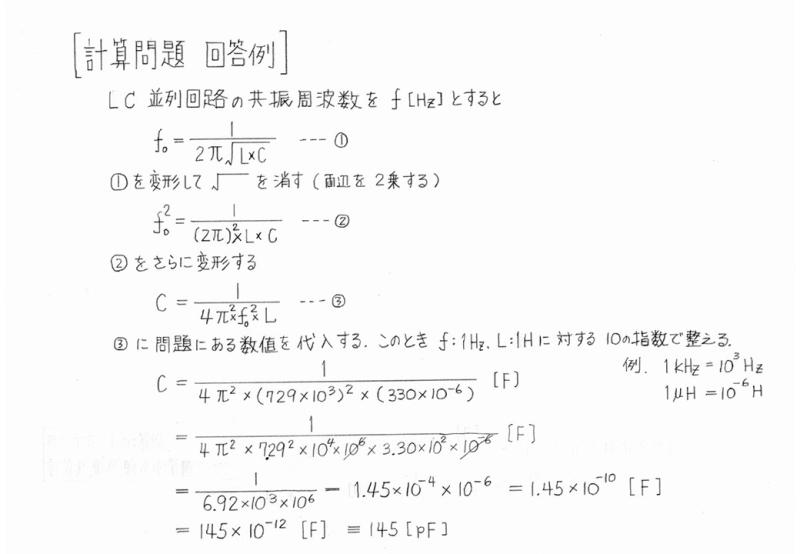 [計算問題 回答例]
LC 並列回路の共振周波数を f [Hz] とすると
f₀ = 1 / (2π√(L×C)) --- ①
①を変形して √‾ を消す (両辺を2乗する)
f₀² = 1 / ((2π)²×L×C) --- ②
②をさらに変形する
C = 1 / (4π²×f₀²×L) --- ③
③に問題にある数値を代入する. このとき f:1Hz, L:1H に対する 10の指数で整える.
例. 1kHz = 10³ Hz
1μH = 10⁻⁶ H
C = 1 / (4π² × (729×10³)² × (330×10⁻⁶)) [F]
= 1 / (4π² × 7.29² × 10⁴ × 10⁶ × 3.30×10² × 10⁻⁶) [F]
= 1 / (6.92×10³×10⁶) = 1.45×10⁻⁴ × 10⁻⁶ = 1.45×10⁻¹⁰ [F]
= 145×10⁻¹² [F] ≡ 145 [pF]